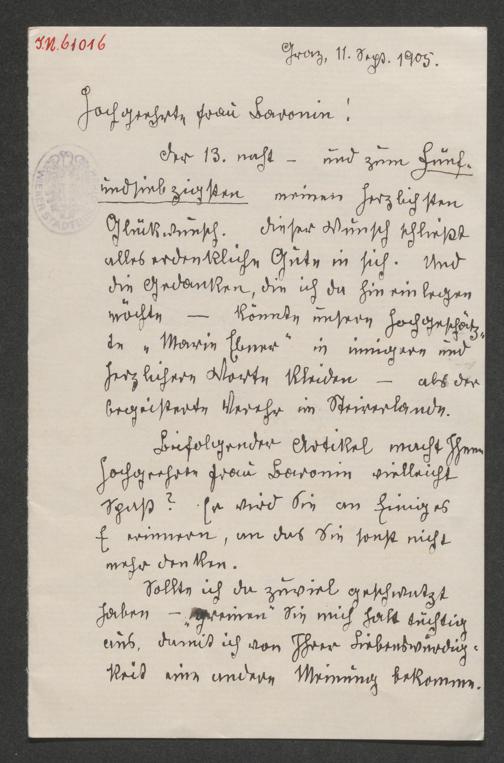 J.N. 61016
Graz, 11. Sept. 1905.
Hochgeehrte Frau Baronin!
Der 13. naht – und zum Fünf-
undsiebzigsten meinen herzlichsten
Glückwunsch. Dieser Wunsch schließt
alles erdenkliche Gute in sich. Und
die Gedanken, die ich da hineinlegen
möchte — könnte unsere hochgeschätz-
te „Marie Ebner" in innigere und
herzlichere Worte kleiden – als der
begeisterte Verehr im Steirerlande.
Beifolgender Artikel macht Ihnen
hochgeehrte Frau Baronin vielleicht
Spaß? Er wird Sie an Einiges
erinnern, an das Sie sonst nicht
mehr denken.
Sollte ich da zuviel geschwatzt
haben – „greinen" Sie mich halt tüchtig
aus, damit ich von Ihrer Liebenswürdig-
keit eine andere Meinung bekomme.